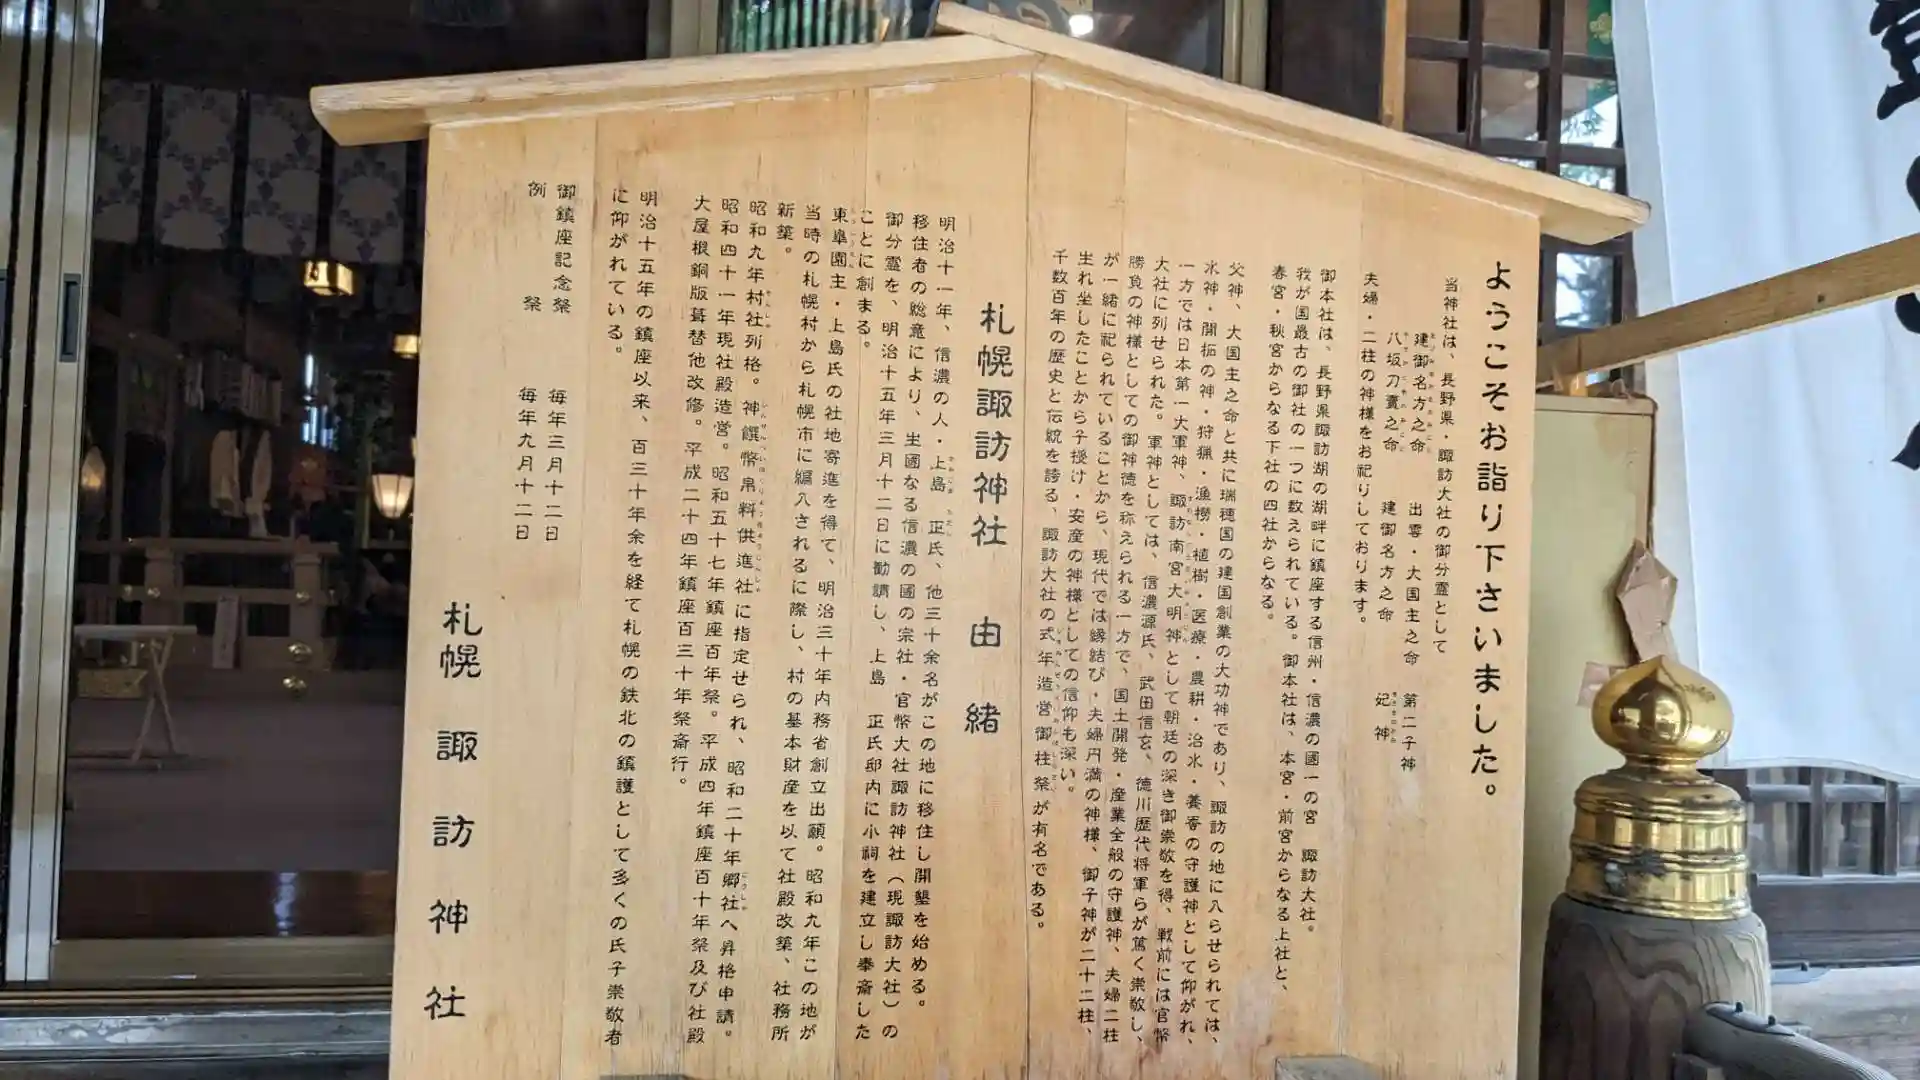 ようこそお詣り下さいました。
当神社は、長野県・諏訪大社の御分霊として
建御名方之命 出雲・大国主之命 第二子神
八坂刀賣之命 建御名方之命 妃神
夫婦・二柱の神様をお祀りしております。
御本社は、長野県諏訪湖の湖畔に鎮座する信州・信濃の國一の宮 諏訪大社。
我が国最古の御社の一つに数えられている。御本社は、本宮・前宮からなる上社と、
春宮・秋宮からなる下社の四社からなる。
父神、大国主之命と共に瑞穂国の建国創業の大功神であり、諏訪の地に入らせられては、
水神・開拓の神・狩猟・漁撈・植樹・医療・農耕・治水・養蚕の守護神として仰がれ、
一方では日本第一大軍神、諏訪南宮大明神として朝廷の深き御崇敬を得、戦前には官幣
大社に列せられた。軍神としては、信濃源氏、武田信玄、徳川歴代将軍らが篤く崇敬し、
勝負の神様としての御神徳を称えられる一方で、国土開発・産業全般の守護神、夫婦二柱
が一緒に祀られていることから、現代では縁結び・夫婦円満の神様、御子神が二十二柱、
生れ坐したことから子授け・安産の神様としての信仰も深い。
千数百年の歴史と伝統を誇る、諏訪大社の式年造営御柱祭が有名である。
札幌諏訪神社 由緒
明治十一年、信濃の人・上島 正氏、他三十余名がこの地に移住し開墾を始める。
移住者の総意により、生國なる信濃の國の宗社・官幣大社諏訪神社（現諏訪大社）の
御分霊を、明治十五年三月十二日に勧請し、上島 正氏邸内に小祠を建立し奉斎した
ことに創まる。
東皐園主・上島氏の社地寄進を得て、明治三十年内務省創立出願。昭和九年この地が
当時の札幌村から札幌市に編入されるに際し、村の基本財産を以て社殿改築、社務所
新築。
昭和九年村社列格。神饌幣帛料供進社に指定せられ、昭和二十年郷社へ昇格申請。
昭和四十一年現社殿造営。昭和五十七年鎮座百年祭。平成四年鎮座百十年祭及び社殿
大屋根銅版葺替他改修。平成二十四年鎮座百三十年祭斎行。
明治十五年の鎮座以来、百三十年余を経て札幌の鉄北の鎮護として多くの氏子崇敬者
に仰がれている。
御鎮座記念祭 毎年三月十二日
例 祭 毎年九月十二日
札幌 諏訪神社